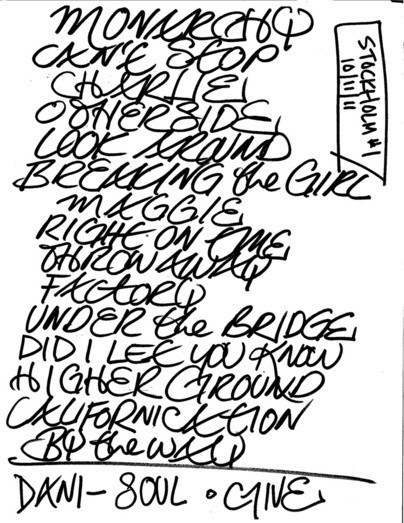 MONARCHY
CAN'T STOP
CHARLIE
OTHERSIDE
LOOK AROUND
BREAKING the GIRL
MAGGIE
RIGHT ON TIME
THROWAWAY
FACTORY
UNDER the BRIDGE
DID I LET YOU KNOW
HIGHER GROUND
CALIFORNICATION
BY the WAY
DANI - SOUL • GIVE
STOCKHOLM #1
10/11/11